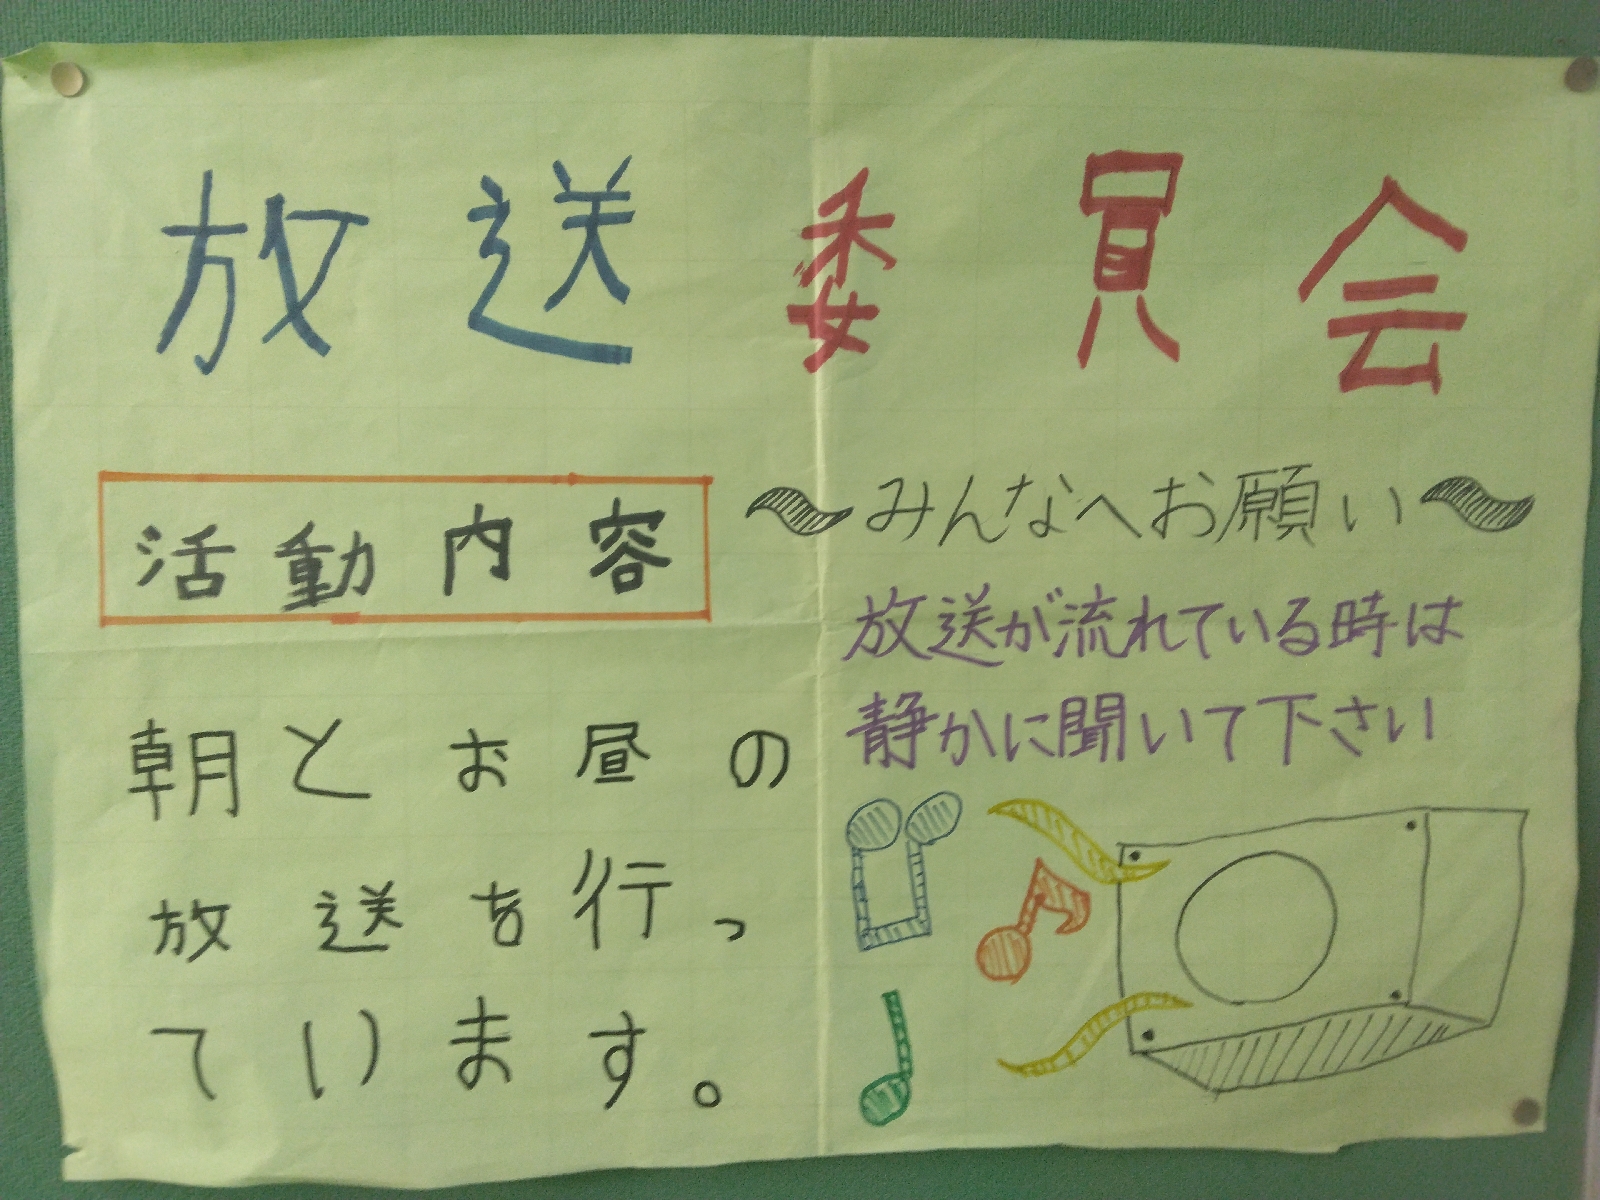 放送委員会
活動内容
朝とお昼の
放送を行っ
ています。
〜みんなへお願い〜
放送が流れている時は
静かに聞いて下さい